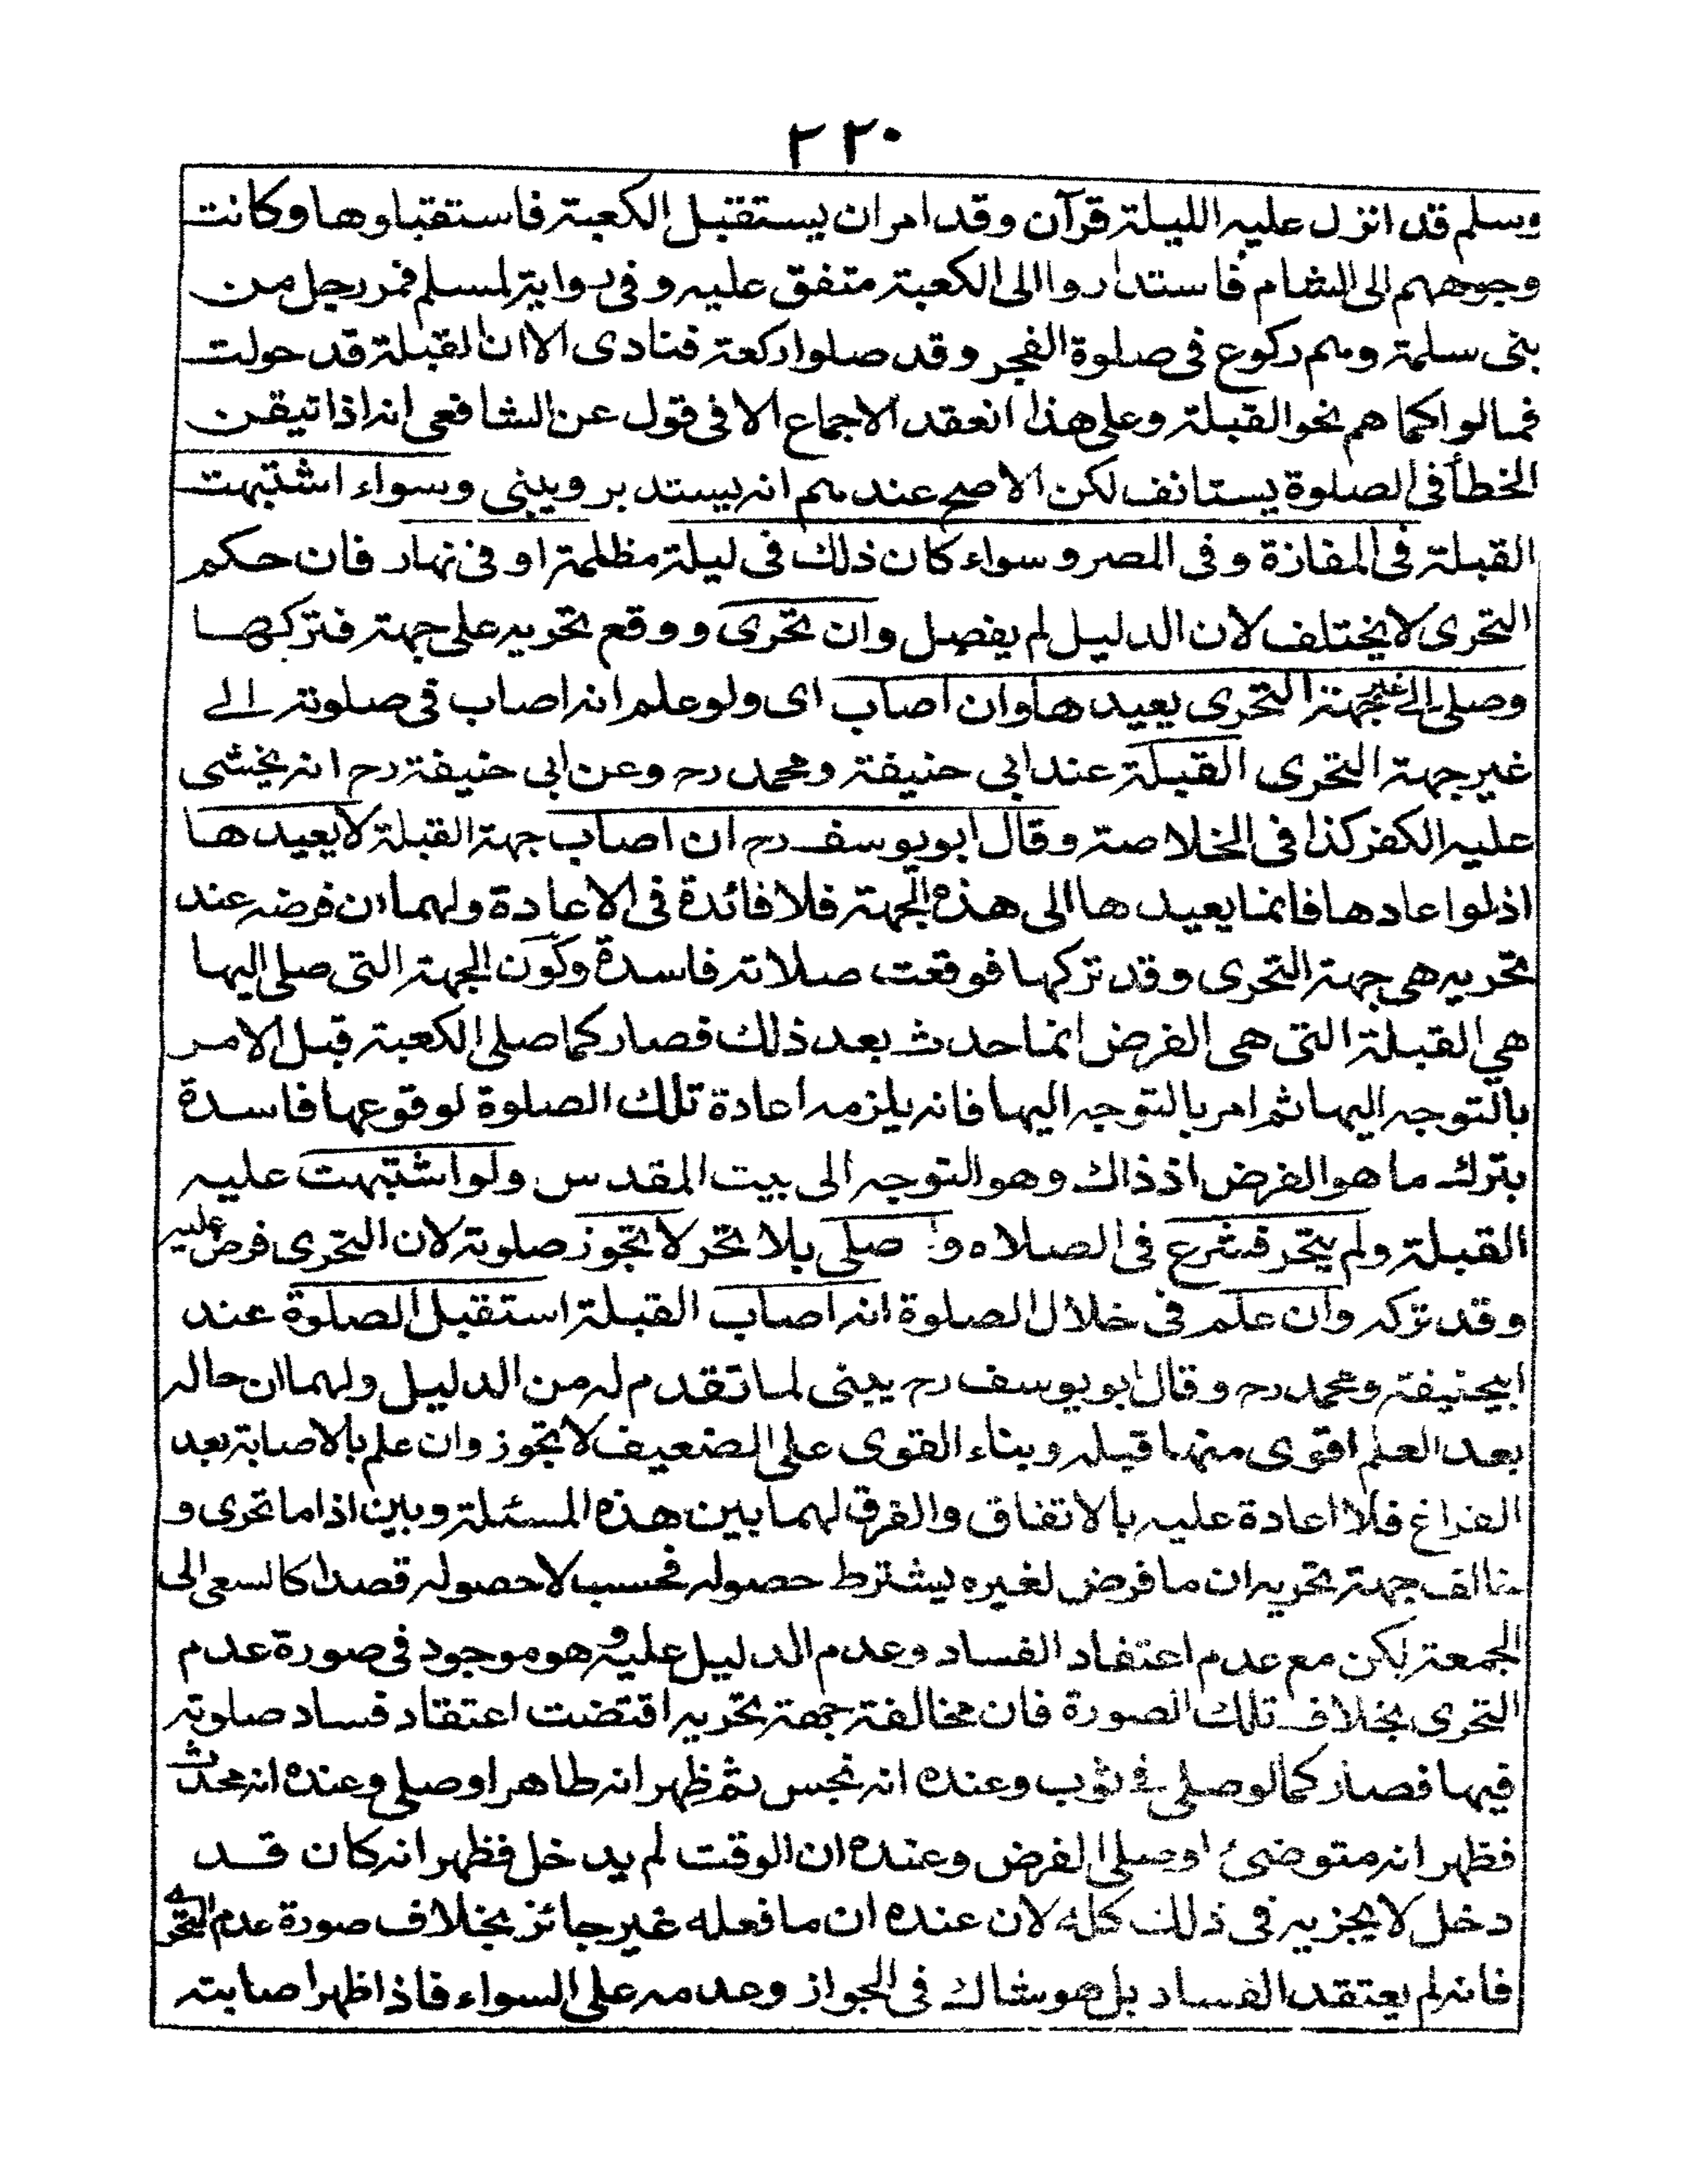 ٢٢٠
وسلم قد انزل عليه الليلة قرآن وقد امر ان يستقبل الكعبة فاستقبلوها وكانت
وجوههم الى الشام فاستداروا الى الكعبة متفق عليه وفى رواية لمسلم فمر رجل من
بنى سلمة وهم ركوع فى صلوة الفجر وقد صلوا ركعة فنادى الا ان القبلة قد حولت
فمالوا كما هم نحو القبلة وعلى هذا انعقد الاجماع الا فى قول عن الشافعى انه اذا تيقن
الخطأ فى الصلوة يستانف لكن الاصح عندهم انه يستدير ويبنى وسواء اشتبهت
القبلة فى المفازة وفى المصر وسواء كان ذلك فى ليلة مظلمة او فى نهار فان حكم
التحرى لا يختلف لان الدليل لم يفصل وان تحرى ووقع تحريه على جهة فتركها
وصلى الى غير جهة التحرى يعيدها وان اصاب اى ولو علم انه اصاب فى صلوته الى
غير جهة التحرى القبلة عند ابى حنيفة ومحمد رح وعن ابى حنيفة رح انه يخشى
عليه الكفر كذا فى الخلاصة وقال ابو يوسف رح ان اصاب جهة القبلة لا يعيدها
اذ لو اعادها فانما يعيدها الى هذه الجهة فلا فائدة فى الاعادة ولهما ان فرضه عند
تحريه هى جهة التحرى وقد تركها فوقعت صلاته فاسدة وكون الجهة التى صلى اليها
هي القبلة التى هى الفرض انما حدث بعد ذلك فصار كما صلى الكعبة قبل الامر
بالتوجه اليها ثم امر بالتوجه اليها فانه يلزمه اعادة تلك الصلوة لوقوعها فاسدة
بترك ما هو الفرض اذ ذاك وهو التوجه الى بيت المقدس ولو اشتبهت عليه
القبلة ولم يتحر فشرع فى الصلاه و صلى بلا تحر لا تجوز صلوته لان التحرى فرض عليه
وقد تركه وان علم فى خلال الصلوة انه اصاب القبلة استقبل الصلوة عند
ابيحنيفة ومحمد رح وقال ابو يوسف رح يبنى لما تقدم له من الدليل ولهما ان حاله
بعد العلم اقوى منها قبله وبناء القوى على الضعيف لا تجوز وان علم بالاصابة بعد
الفراغ فلا اعادة عليه بالاتفاق والفرق لهما بين هذه المسئلة وبين اذا ما تحرى و
خالف جهة تحريه ان ما فرض لغيره يشترط حصوله فحسب لا حصوله قصدا كالسعى الى
الجمعة لكن مع عدم اعتقاد الفساد وعدم الدليل عليه و هو موجود فى صورة عدم
التحرى بخلاف تلك الصورة فان مخالفة جهة تحريه اقتضت اعتقاد فساد صلوته
فيها فصار كما لو صلى فى ثوب وعنده انه نجس ثم ظهر انه طاهر او صلى وعنده انه محدث
فظهر انه متوضئ او صلى الفرض وعنده ان الوقت لم يدخل فظهر انه كان قد
دخل لا يجزيه فى ذلك كله لان عنده ان ما فعله غير جائز بخلاف صورة عدم التحرى
فانه لم يعتقد الفساد بل هو شاك فى الجواز وعدمه على السواء فاذا ظهر اصابته